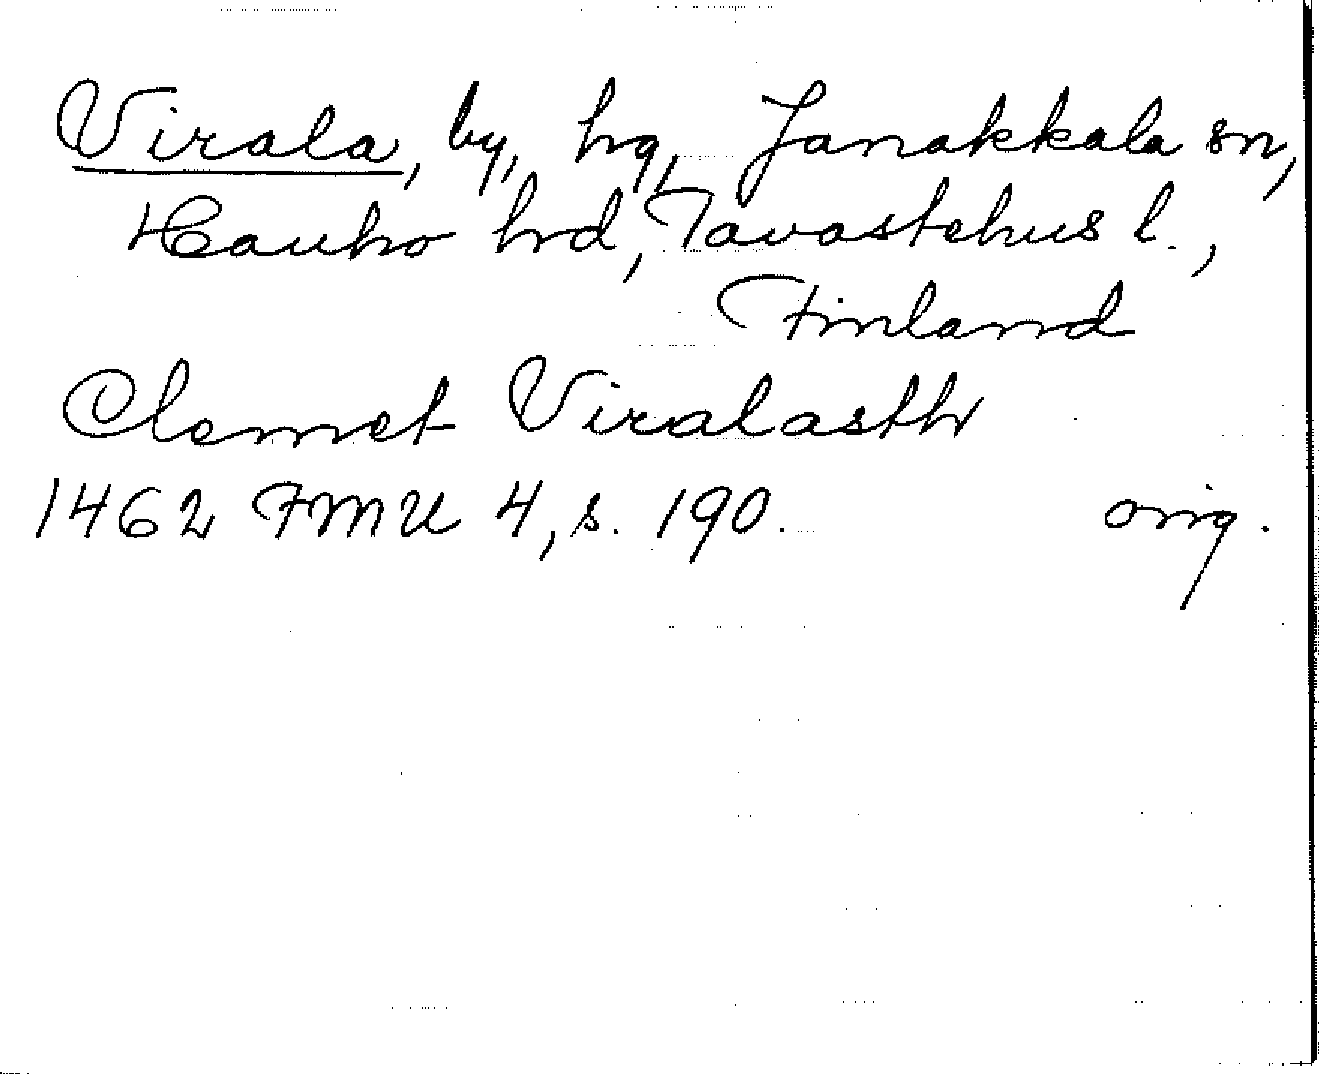 Virala, by, hg, Janakkala sn,
Hauho hrd, Tavastehus l.,
Finland
Clemet Viralasth
1462 FMU 4, s. 190. orig.